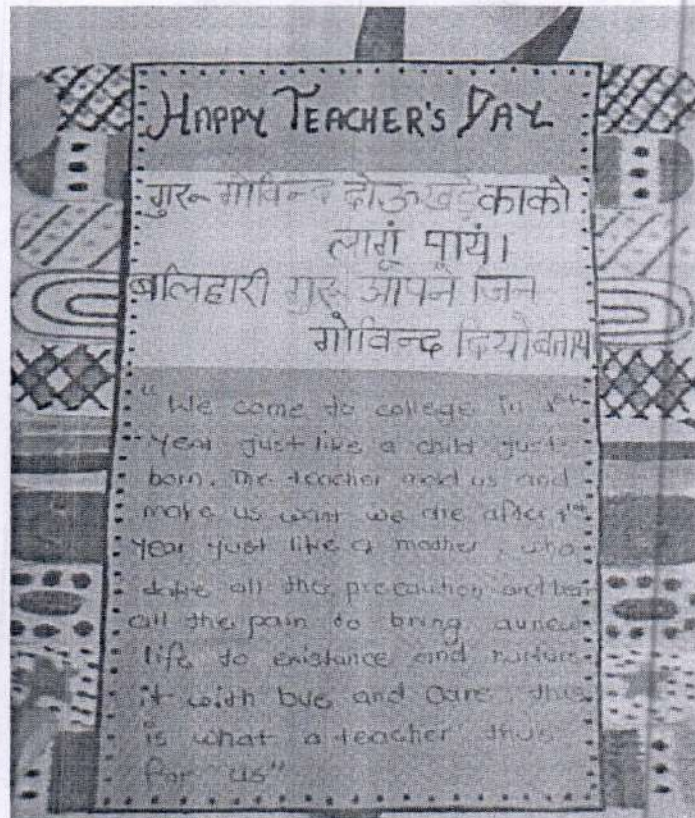 HAPPY TEACHER'S DAY
गुरू गोविन्द दोऊ खड़े काको
लागूं पायं।
बलिहारी गुरू आपने जिन
गोविन्द दियो बताय
"We come to college in 1st
year just like a child just
born. The teacher mold us and
make us want we are after 1st
year just like a mother, who
take all the precaution and bear
all the pain to bring a new
life to existance and nurture
it with love and care this
is what a teacher thus
for us"